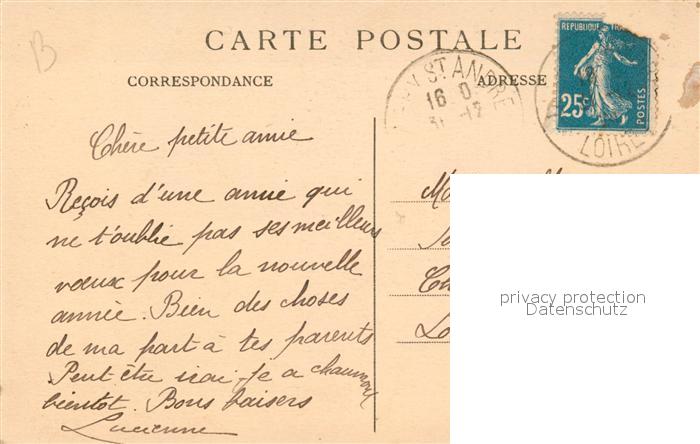 B
CARTE POSTALE
CORRESPONDANCE
ADRESSE
ST ANDRE
16
31 -12
REPUBLIQUE
25c
POSTES
LOIRE
Chère petite amie
Reçois d'une amie qui
ne t'oublie pas ses meilleurs
vœux pour la nouvelle
année. Bien des choses
de ma part à tes parents
Peut être irai-je a chaumont
bientot. Bons baisers
Lucienne
privacy protection
Datenschutz